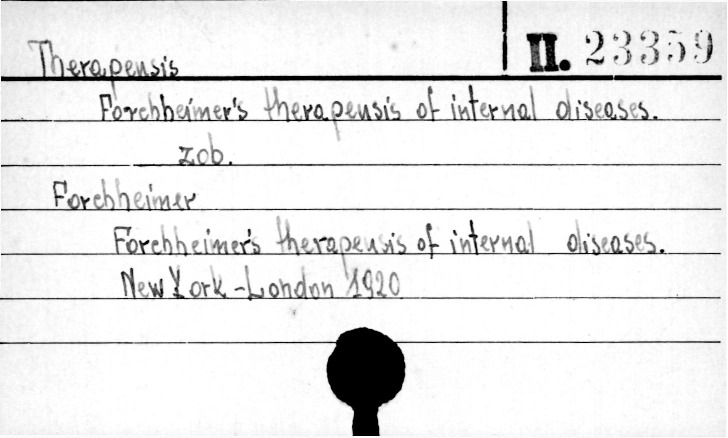 Therapensis
II. 23359
Forchheimer's therapensis of internal diseases.
zob.
Forchheimer
Forchheimer's therapensis of internal diseases.
New York - London 1920